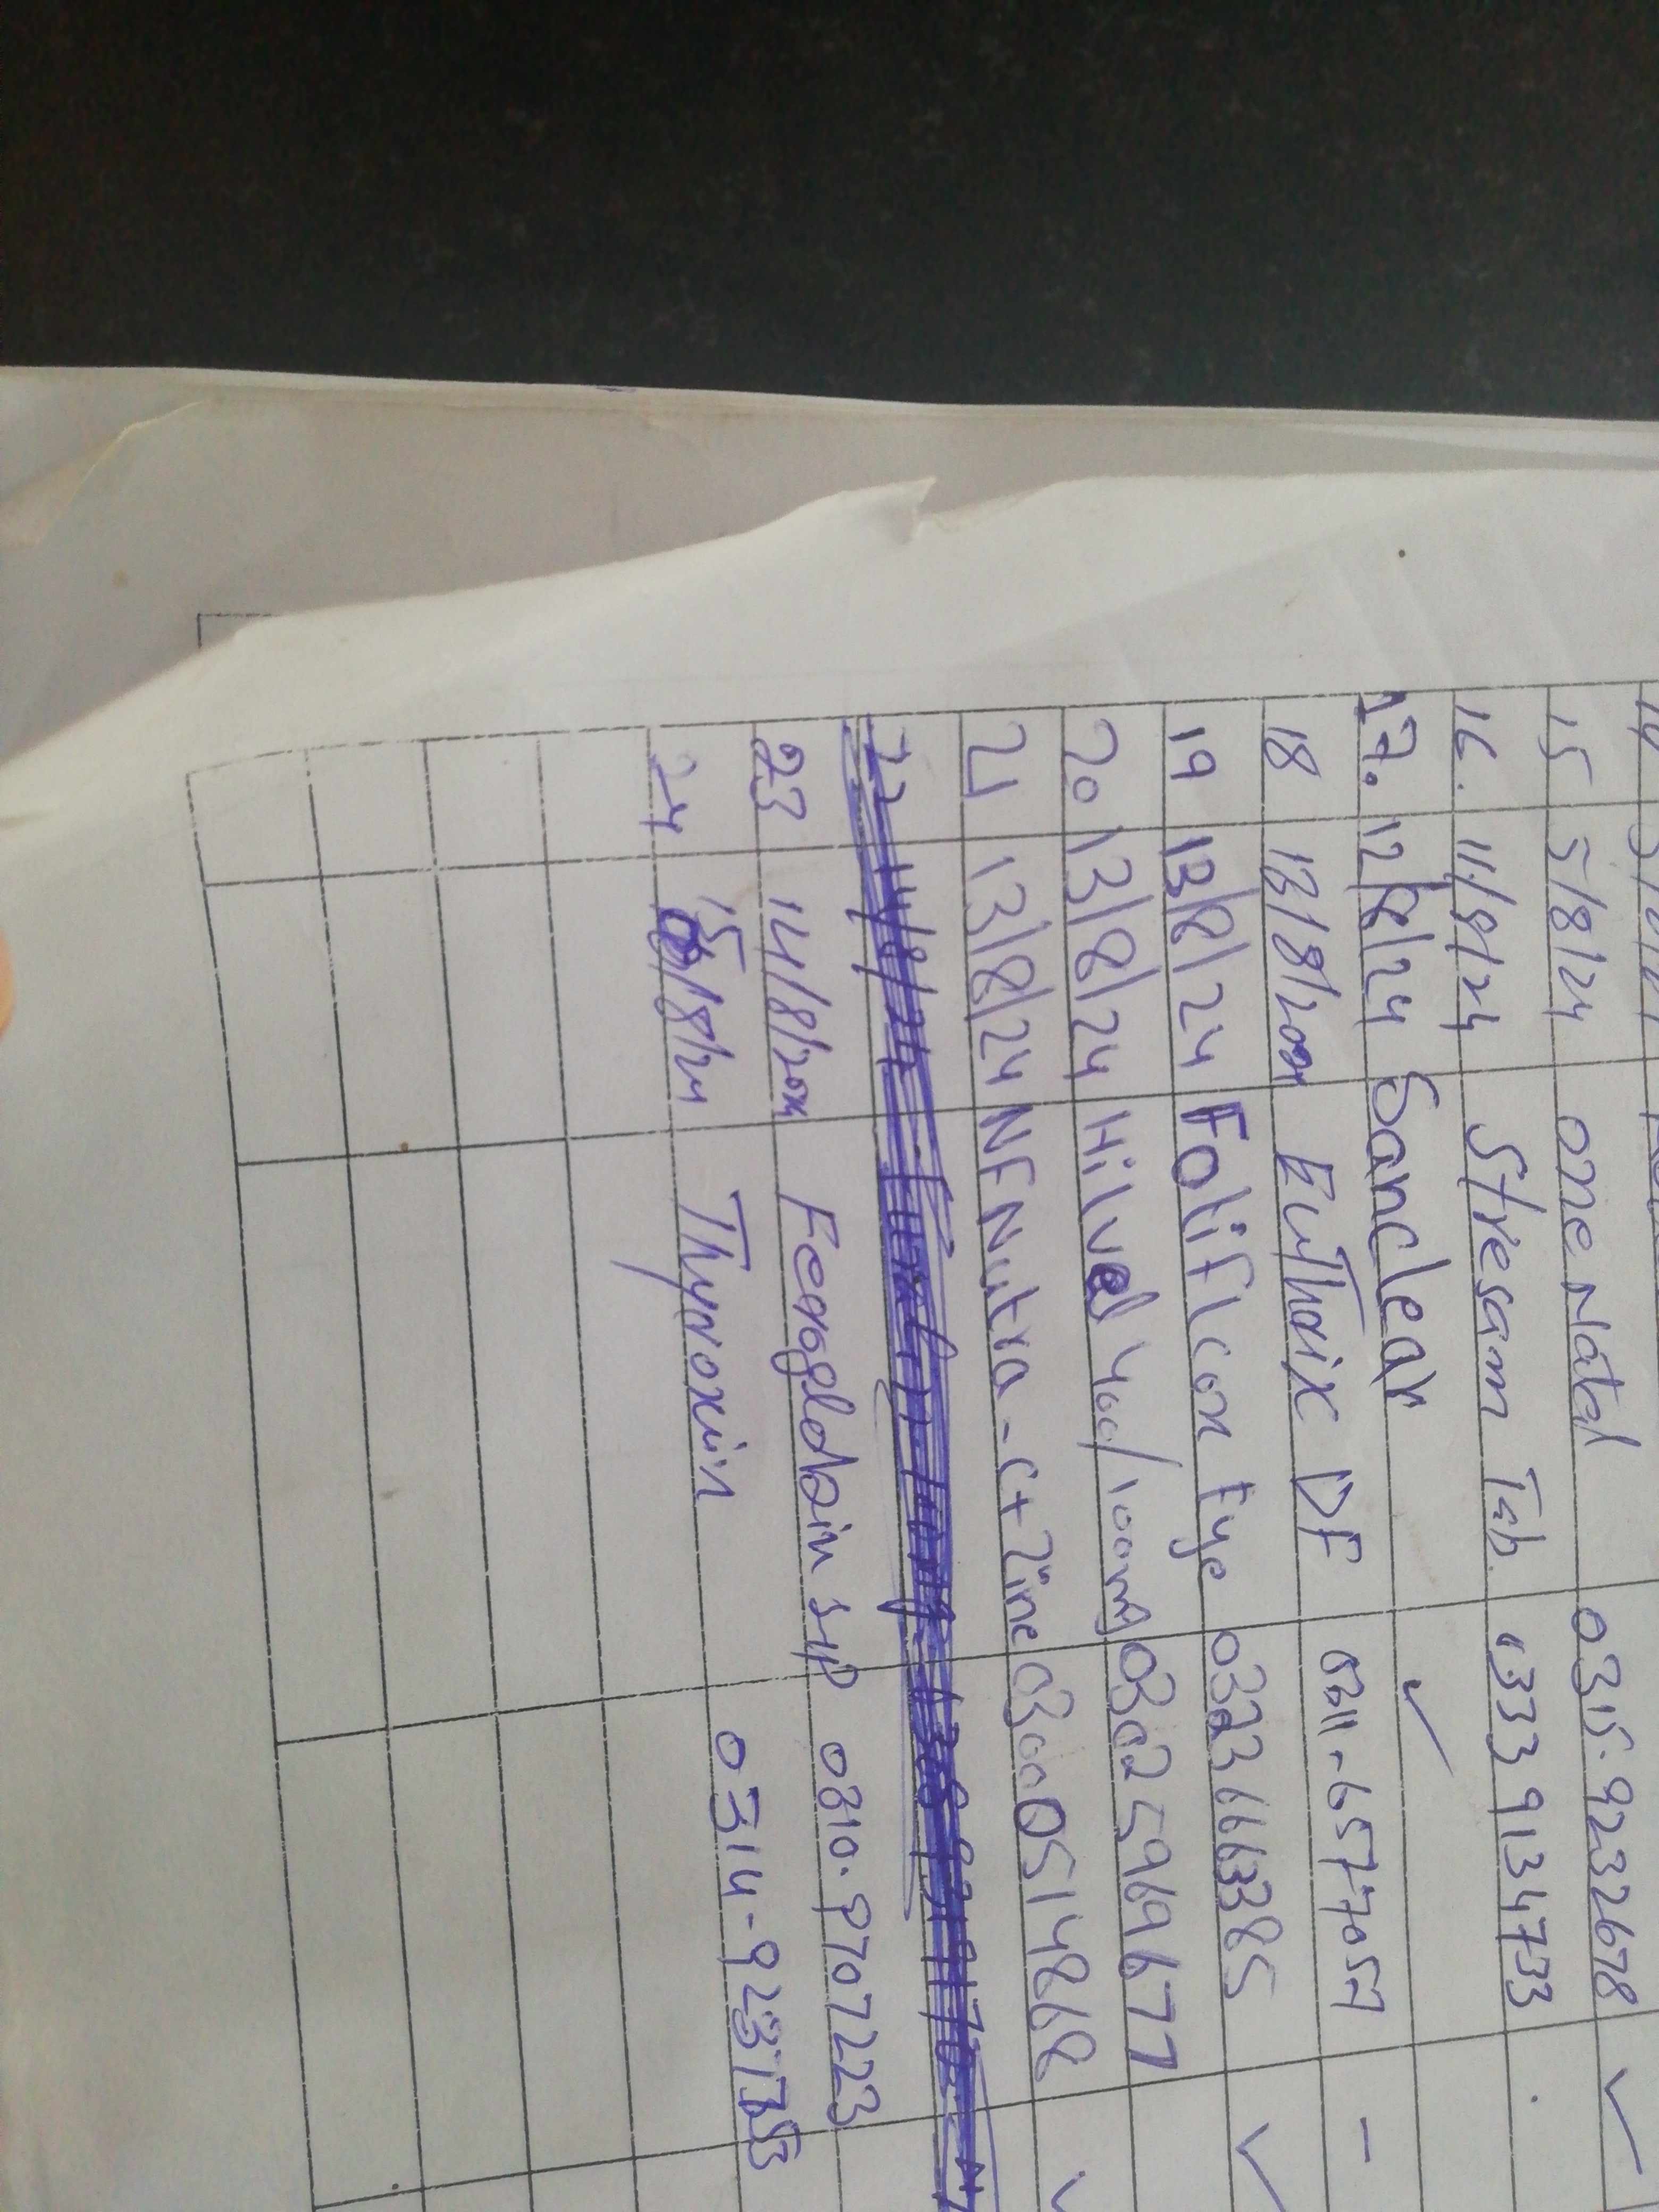 15 5/8/24 one Natal 0315.9232678 ✓
16. 11/8/24 Stresam Tab. 03339134733
17. 12/8/24 Sanclear ✓
18 13/8/2024 EuThrix DF -
19 13/8/24 Foliflcon Eye 03236663385 ✓
20 13/8/24 Hilvel 400/100mg 03025969677
21 13/8/24 NFNutra-C+Zinc 03000514868 ✓
22 14/8/24
23 14/8/2024 Feroglobin syp
24 15/8/24 Thyroxin